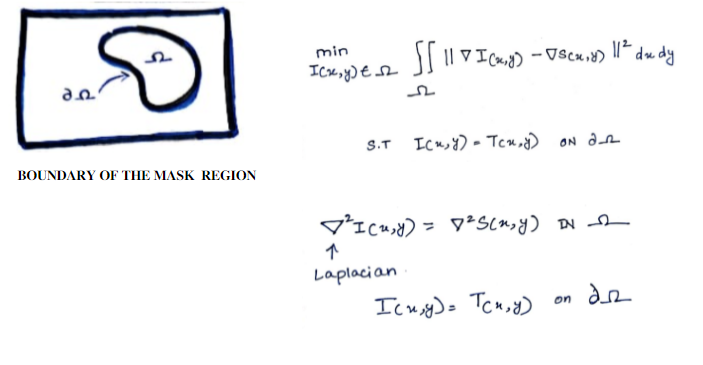 Ω
∂Ω
BOUNDARY OF THE MASK REGION
min
I(x,y) ∈ Ω ∬ || ∇I(x,y) - ∇S(x,y) ||² dx dy
Ω
S.T I(x,y) = T(x,y) ON ∂Ω
∇²I(x,y) = ∇²S(x,y) IN Ω
↑
Laplacian.
I(x,y) = T(x,y) on ∂Ω